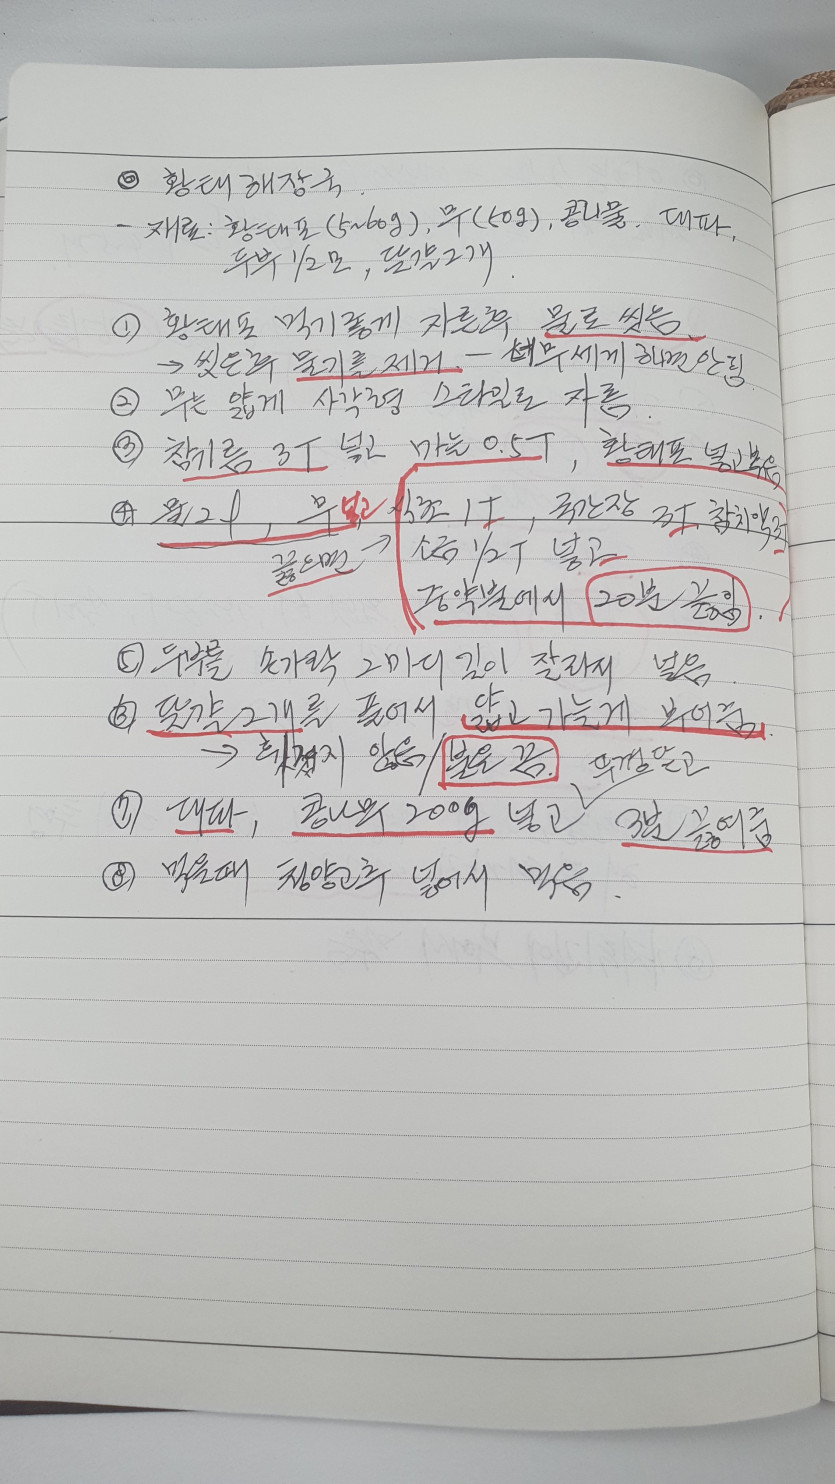 ⑥ 황태해장국.
- 재료: 황태포(5~60g), 무(150g), 콩나물, 대파,
두부 1/2모, 달걀2개.
① 황태포 먹기좋게 자른후 물로 씻음.
→ 씻은후 물기를 제거 - 너무세게 하면 안됨
② 무는 얇게 사각형 스타일로 자름.
③ 참기름 3T 넣고 마늘 0.5T, 황태포 넣고볶음
④ 물2l, 무넣고, 1T, 국간장 3T, 참치액
끓으면 → 소금 1/2T 넣고
중약불에서 20분 끓임.
⑤ 두부를 손가락 2마디 길이 잘라서 넣음.
⑥ 달걀 2개를 풀어서 얇고 가늘게 부어줌.
→ 휘젓지 않음/불은 끔. 뚜껑닫고
⑦ 대파, 콩나물 200g 넣고 3분 끓여줌
⑧ 먹을때 청양고추 넣어서 먹음.